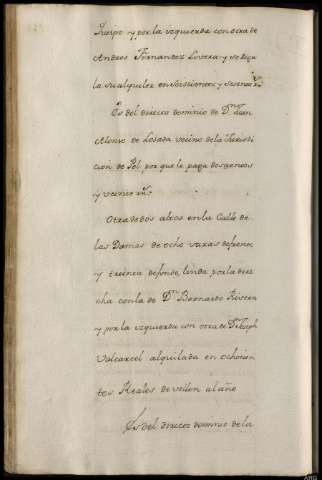 y por la izquierda con otra de
Andres Fernandez Losera y se Regu
la su alquiler en seiscientos y sesenta rs.
Es del directo dominio de Dn. Juan
Alonso de Losada vecino de la Jurisdi
cion de por que le paga doscientos
y veinte rs.
Otra de dos altos en la Calle de
las Damas de ocho varas de frente
y treinta de fondo, linda por la dere
cha con la de Dn. Bernardo Rivera
y por la izquierda con otra de Dn. Joseph
Valcarcel alquilada en ochocien
tos Reales de vellon al año
Es del directo dominio de la
AHG